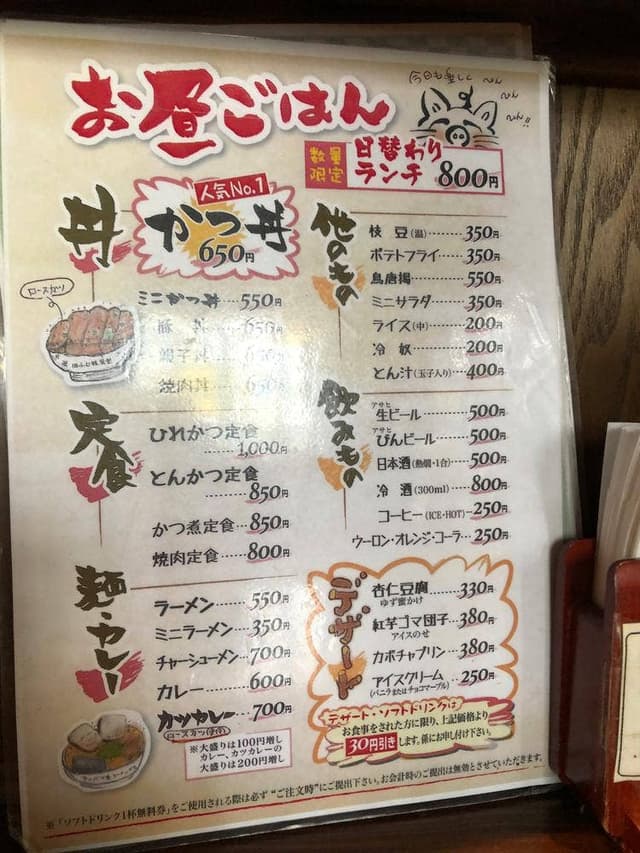 お昼ごはん
今日も楽しく
数量限定
日替わりランチ 800円
丼
人気No.1
かつ丼
650円
ロースカツ
ミニかつ丼…550円
豚丼…650円
親子丼…650円
焼肉丼…650円
定食
ひれかつ定食
……1,000円
とんかつ定食
……850円
かつ煮定食…850円
焼肉定食…800円
麺・カレー
ラーメン……550円
ミニラーメン…350円
チャーシューメン…700円
カレー……600円
カツカレー…700円
(ロースカツ使用)
※大盛りは100円増し
カレー、カツカレーの
大盛りは200円増し
他のもの
枝豆(温)…350円
ポテトフライ…350円
鳥唐揚……550円
ミニサラダ…350円
ライス(中)…200円
冷奴……200円
とん汁(玉子入り)…400円
飲みもの
アサヒ
生ビール……500円
アサヒ
びんビール…500円
日本酒(熱燗・1合)…500円
冷酒(300ml)…800円
コーヒー(ICE・HOT)…250円
ウーロン・オレンジ・コーラ…250円
デザート
杏仁豆腐……330円
ゆず蜜かけ
紅芋ゴマ団子…380円
アイスのせ
カボチャプリン…380円
アイスクリーム…250円
(バニラまたはチョコマーブル)
デザート・ソフトドリンクは
お食事をされた方に限り、上記価格より
30円引きします。係にお申し付け下さい。
※「ソフトドリンク1杯無料券」をご使用される際は必ず“ご注文時”にご提出下さい。お会計時のご提出は無効とさせていただきます。